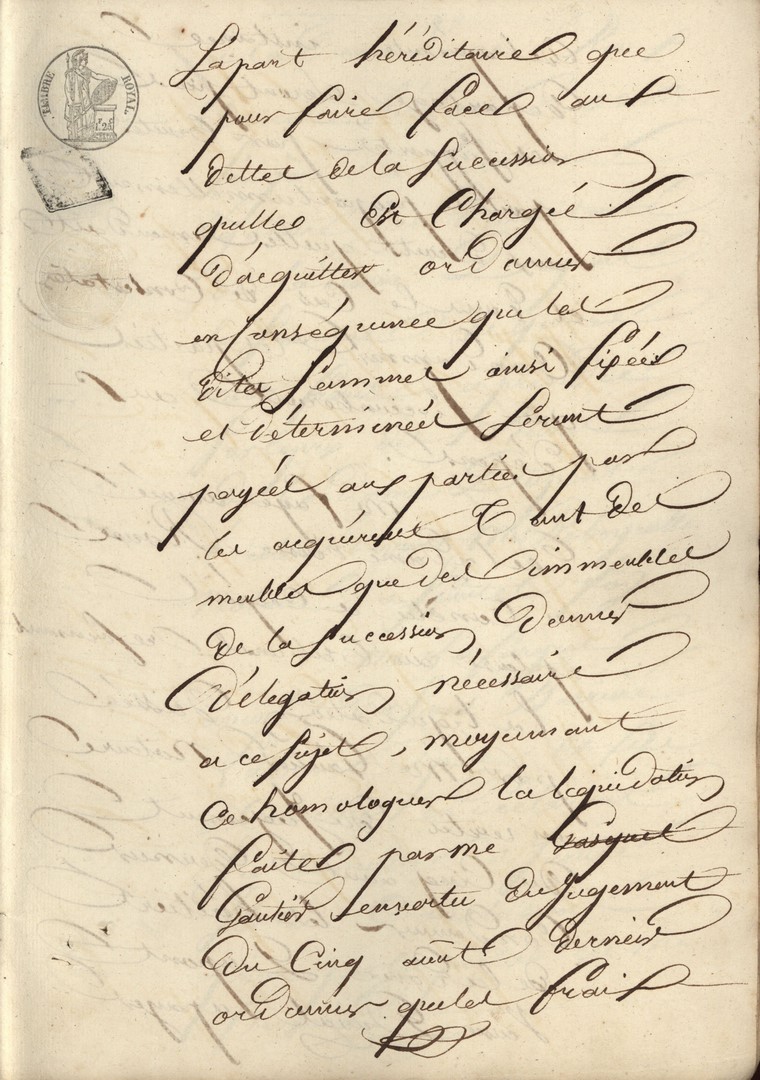 TIMBRE ROYAL
La part héréditaire que
pour faire face aux
dettes de la Succession
quelles Est Chargée
d'acquitter ordonner
en Conséquence que les
dites Sommes ainsi fixées
et déterminées Seront
payées aux parties par
les acquéreurs Tant des
meubles que des immeubles
de la Succession, donner
délégation nécessaire
a ce Sujet, moyennant
Ce homologuer la liquidation
faite par Me
Gautier en vertu du Jugement
du Cinq août dernier
ordonner que les frais